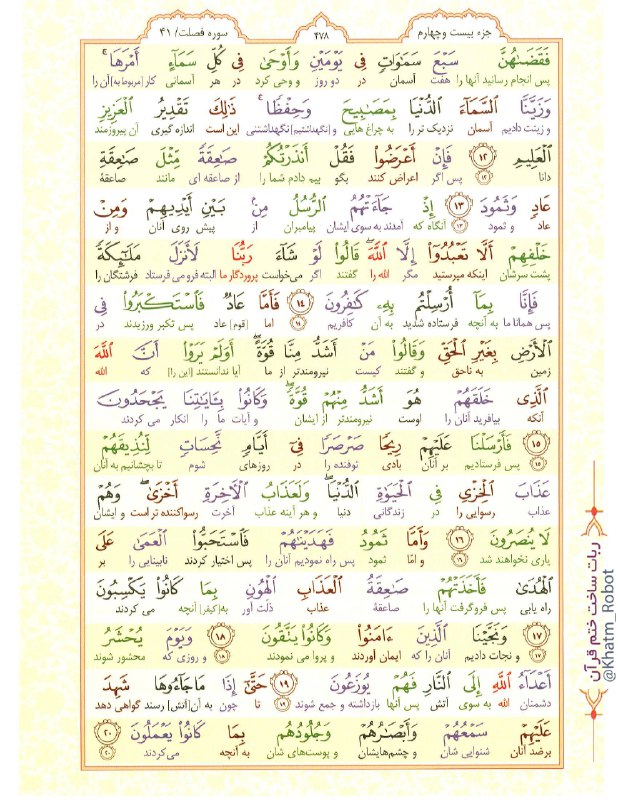 جزء بیست وچهارم
۴۷۸
سوره فصلت/ ۴۱
فَقَضَىٰهُنَّ سَبْعَ سَمَٰوَاتٍ فِى يَوْمَيْنِ وَأَوْحَىٰ فِى كُلِّ سَمَآءٍ أَمْرَهَا ۚ
پس انجام رسانید آنها را هفت آسمان در دو روز و وحی کرد در هر آسمانی کار [مربوط به] آن را
وَزَيَّنَّا ٱلسَّمَآءَ ٱلدُّنْيَا بِمَصَٰبِيحَ وَحِفْظًا ۚ ذَٰلِكَ تَقْدِيرُ ٱلْعَزِيزِ
و زینت دادیم آسمان نزدیک تر را به چراغ هایی و [نگهداشتیم] نگهداشتنی این است اندازه گیری آن پیروزمند
ٱلْعَلِيمِ ۱۲ فَإِنْ أَعْرَضُوا۟ فَقُلْ أَنذَرْتُكُمْ صَٰعِقَةً مِّثْلَ صَٰعِقَةِ
دانا ۱۲ پس اگر اعراض کنند بگو بیم دادم شما را از صاعقه ای مانند صاعقهٔ
عَادٍ وَثَمُودَ ۱۳ إِذْ جَآءَتْهُمُ ٱلرُّسُلُ مِنۢ بَيْنِ أَيْدِيهِمْ وَمِنْ
عاد و ثمود ۱۳ آنگاه که آمدند به سوی ایشان پیامبران از پیش روی آنان و از
خَلْفِهِمْ أَلَّا تَعْبُدُوٓا۟ إِلَّا ٱللَّهَ ۖ قَالُوا۟ لَوْ شَآءَ رَبُّنَا لَأَنزَلَ مَلَٰٓئِكَةً
پشت سرشان اینکه مپرستید مگر الله را گفتند اگر می‌خواست پروردگار ما البته فرو می فرستاد فرشتگان را
فَإِنَّا بِمَآ أُرْسِلْتُم بِهِۦ كَٰفِرُونَ ۱۴ فَأَمَّا عَادٌ فَٱسْتَكْبَرُوا۟ فِى
پس همانا ما به آنچه فرستاده شدید به آن کافریم ۱۴ اما [قوم] عاد پس تکبر ورزیدند در
ٱلْأَرْضِ بِغَيْرِ ٱلْحَقِّ وَقَالُوا۟ مَنْ أَشَدُّ مِنَّا قُوَّةً ۖ أَوَلَمْ يَرَوْا۟ أَنَّ ٱللَّهَ
زمین به ناحق و گفتند کیست نیرومندتر از ما آیا ندانستند [این را] که الله
ٱلَّذِى خَلَقَهُمْ هُوَ أَشَدُّ مِنْهُمْ قُوَّةً ۖ وَكَانُوا۟ بِـَٔايَٰتِنَا يَجْحَدُونَ
آنکه بیافرید آنان را اوست نیرومندتر از ایشان و آیات ما را انکار می کردند
۱۵ فَأَرْسَلْنَا عَلَيْهِمْ رِيحًا صَرْصَرًا فِىٓ أَيَّامٍ نَّحِسَاتٍ لِّنُذِيقَهُمْ
۱۵ پس فرستادیم بر آنان بادی توفنده را در روزهای شوم تا بچشانیم به آنان
عَذَابَ ٱلْخِزْىِ فِى ٱلْحَيَوٰةِ ٱلدُّنْيَا ۖ وَلَعَذَابُ ٱلْـَٔاخِرَةِ أَخْزَىٰ ۖ وَهُمْ
عذاب رسوایی را در زندگانی دنیا و هر آینه عذاب آخرت رسواکننده تر است و ایشان
لَا يُنصَرُونَ ۱۶ وَأَمَّا ثَمُودُ فَهَدَيْنَٰهُمْ فَٱسْتَحَبُّوا۟ ٱلْعَمَىٰ عَلَى
یاری نخواهند شد ۱۶ و امّا ثمود پس راه نمودیم آنان را پس اختیار کردند نابینایی را بر
ٱلْهُدَىٰ فَأَخَذَتْهُمْ صَٰعِقَةُ ٱلْعَذَابِ ٱلْهُونِ بِمَا كَانُوا۟ يَكْسِبُونَ
راه یابی پس فروگرفت آنها را صاعقهٔ عذاب ذلت آور به [کیفر] آنچه می کردند
۱۷ وَنَجَّيْنَا ٱلَّذِينَ ءَامَنُوا۟ وَكَانُوا۟ يَتَّقُونَ ۱۸ وَيَوْمَ يُحْشَرُ
۱۷ و نجات دادیم آنان را که ایمان آوردند و پروا می نمودند ۱۸ و روزی که محشور شوند
أَعْدَآءُ ٱللَّهِ إِلَى ٱلنَّارِ فَهُمْ يُوزَعُونَ ۱۹ حَتَّىٰٓ إِذَا مَا جَآءُوهَا شَهِدَ
دشمنان الله به سوی آتش پس آنها بازداشته و جمع شوند ۱۹ تا چون به آن [آتش] رسند گواهی دهد
عَلَيْهِمْ سَمْعُهُمْ وَأَبْصَٰرُهُمْ وَجُلُودُهُم بِمَا كَانُوا۟ يَعْمَلُونَ ۲۰
برضد آنان شنوایی شان و چشم‌هایشان و پوست‌های شان به آنچه می‌کردند ۲۰
ربات ساخت ختم قرآن
@Khatm_Robot